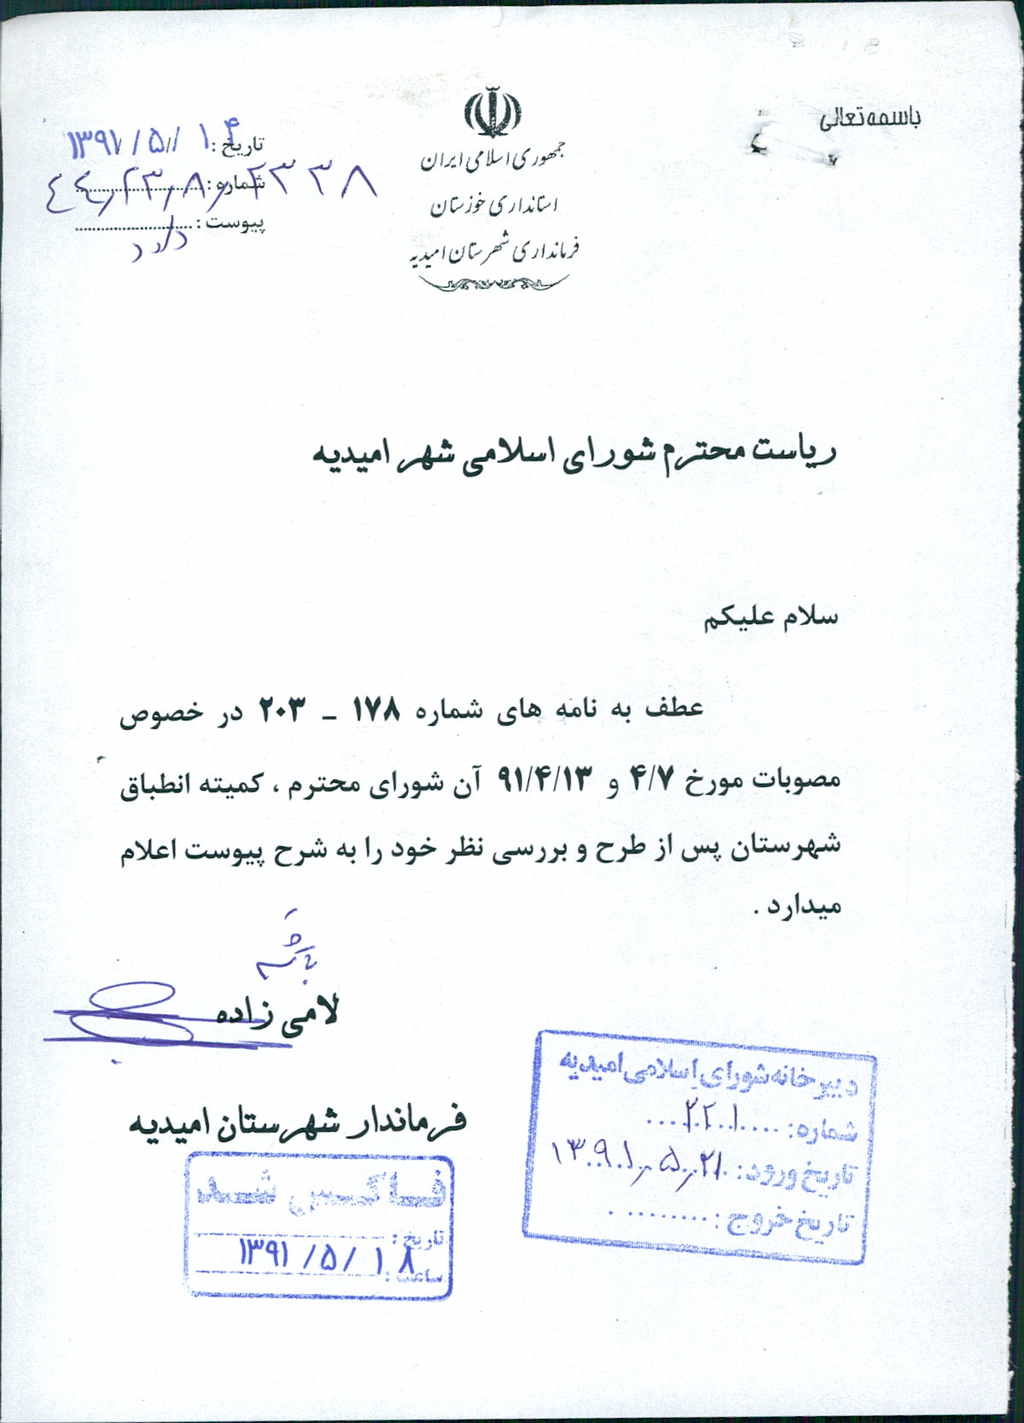 باسمه تعالی
جمهوری اسلامی ایران
استانداری خوزستان
فرمانداری شهرستان امیدیه
تاریخ: ۱۳۹۱/۵/۱۴
شماره: ۴۴/۲۳/۸/۲۳۳۸
پیوست: دارد
ریاست محترم شورای اسلامی شهر امیدیه
سلام علیکم
عطف به نامه های شماره ۱۷۸ ـ ۲۰۳ در خصوص
مصوبات مورخ ۴/۷ و ۹۱/۴/۱۳ آن شورای محترم ، کمیته انطباق
شهرستان پس از طرح و بررسی نظر خود را به شرح پیوست اعلام
میدارد .
لامی زاده
فرماندار شهرستان امیدیه
دبیرخانه شورای اسلامی امیدیه
شماره: ۲۲۰۱
تاریخ ورود: ۱۳۹۱/۵/۲۱
تاریخ خروج:
فاکس شد
تاریخ: ۱۳۹۱/۵/۱۸
ساعت: